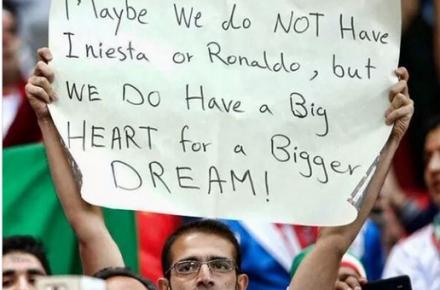 Maybe We do NOT Have
Iniesta or Ronaldo, but
WE DO Have a Big
HEART for a Bigger
DREAM!